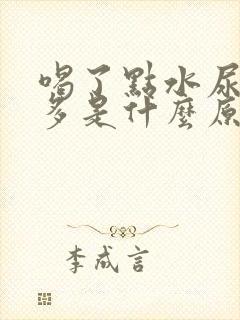 喝了點水尿
多是什麼原
李成言